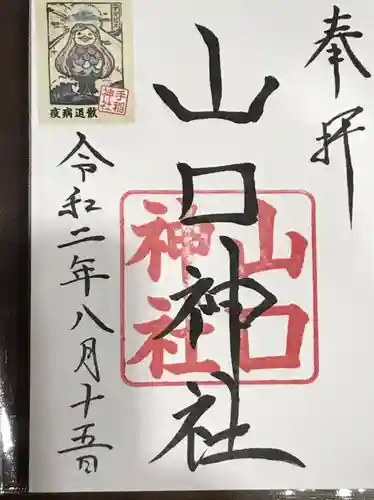 奉拝
山口神社
山口
神社
令和二年八月十五日
手稲
神社
疫病退散